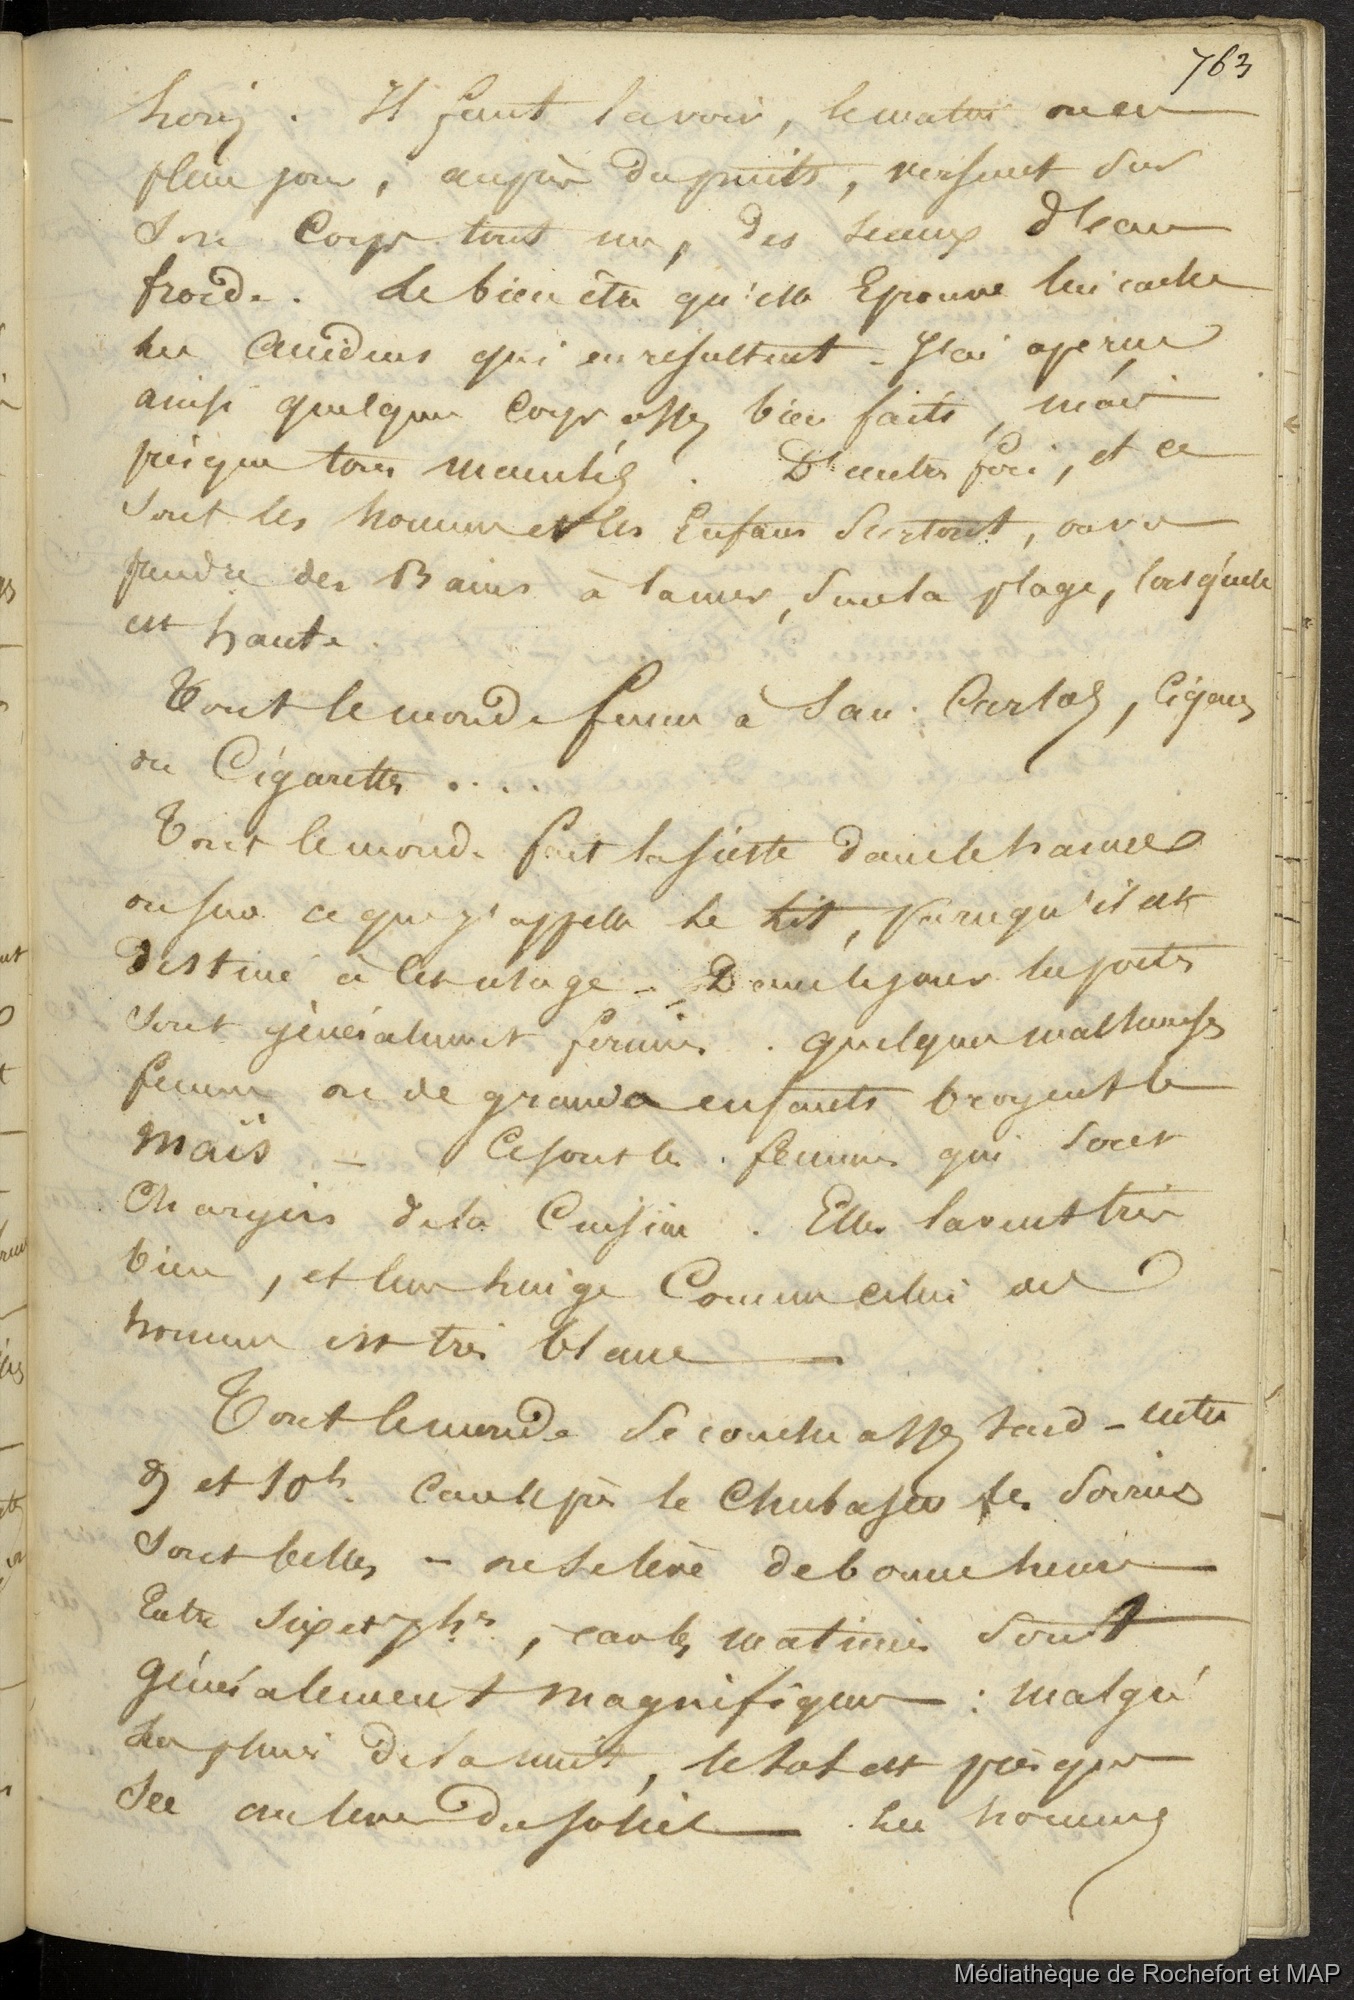 763
horiz. Il faut la voir, le matin ou en
plein jour, auprès du puits, versant sur
son corps tout nu, des seaux d'eau
froide. Le bien être qu'elle Eprouve lui cache
les accidens qui en résultent - J'ai aperçu
ainsi quelques corps assez bien faits, mais
présque tous . D'autres fois, et ce
sont les hommes et les Enfans surtout, on va
prendre des Bains à la mer, sur la plage, lorsqu'elle
est haute.
Tout le monde fume à San: Carlos, Cigares
ou Cigarettes ....
Tout le monde fait la sieste dans le hamac
ou sur ce que j'appelle le lit, parcequ'il est
destiné à cet usage - Dans le jour les portes
sont généralement fermées. quelques malheureuses
femmes ou de grands enfants broyent le
maïs - Ce sont les femmes qui sont
Chargées de la Cuisine. Elles lavent très
bien, et leur linge Comme celui des
hommes est très blanc
Tout le monde se couche assez tard - entre
9 et 10h. Car après le Chubasco les Soirées
sont belles - on se lève de bonne heure
Entre Six et 7hs, car les matinées sont
généralement magnifiques : malgré
les pluies de la nuit, le sol est présque
Sec au lever du soleil . Les hommes
Médiathèque de Rochefort et MAP